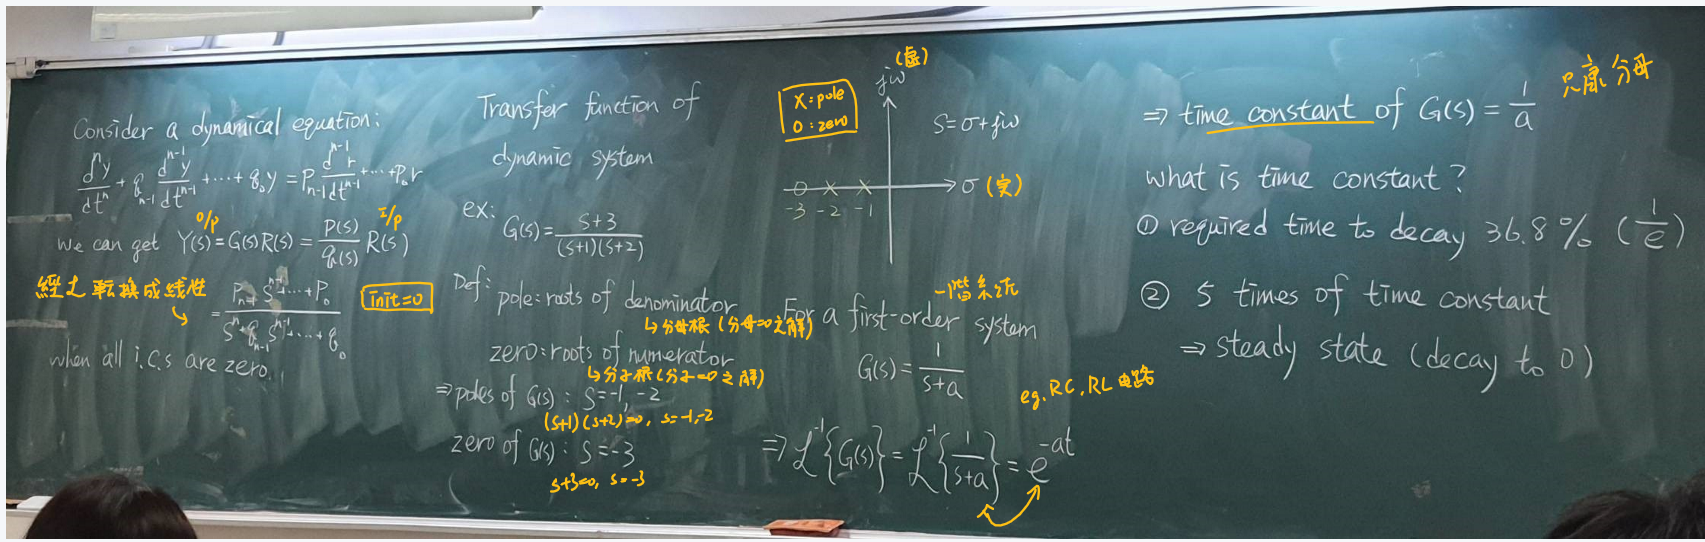 Consider a dynamical equation:
d^n y/dt^n + q_{n-1} d^{n-1} y/dt^{n-1} + ··· + q_0 y = P_{n-1} d^{n-1} r/dt^{n-1} + ··· + P_0 r
O/P
I/P
we can get Y(s) = G(s) R(s) = P(s)/q(s) R(s)
經L轉換成线性
= P_{n-1} S^{n-1} + ··· + P_0 / S^n + q_{n-1} S^{n-1} + ··· + q_0
init=0
when all i.c.s are zero.
Transfer function of
dynamic system
ex:
G(s) = S+3/(S+1)(S+2)
Def:
pole: roots of denominator
↳ 分母根 (分母=0之解)
zero: roots of numerator
↳ 分子根 (分子=0之解)
⇒ poles of G(s) : S=-1, -2
(s+1)(s+2)=0, s=-1,-2
zero of G(s) : S=-3
s+3=0, s=-3
X: pole
O: zero
jω (虛)
S=σ+jω
σ (実)
-3 -2 -1
一階系统
For a first-order system
G(s) = 1/S+a
eg. RC, RL 电路
⇒ L^{-1}{G(s)} = L^{-1}{1/S+a} = e^{-at}
⇒ time constant of G(s) = 1/a
分母
what is time constant?
① required time to decay 36.8% (1/e)
② 5 times of time constant
⇒ steady state (decay to 0)